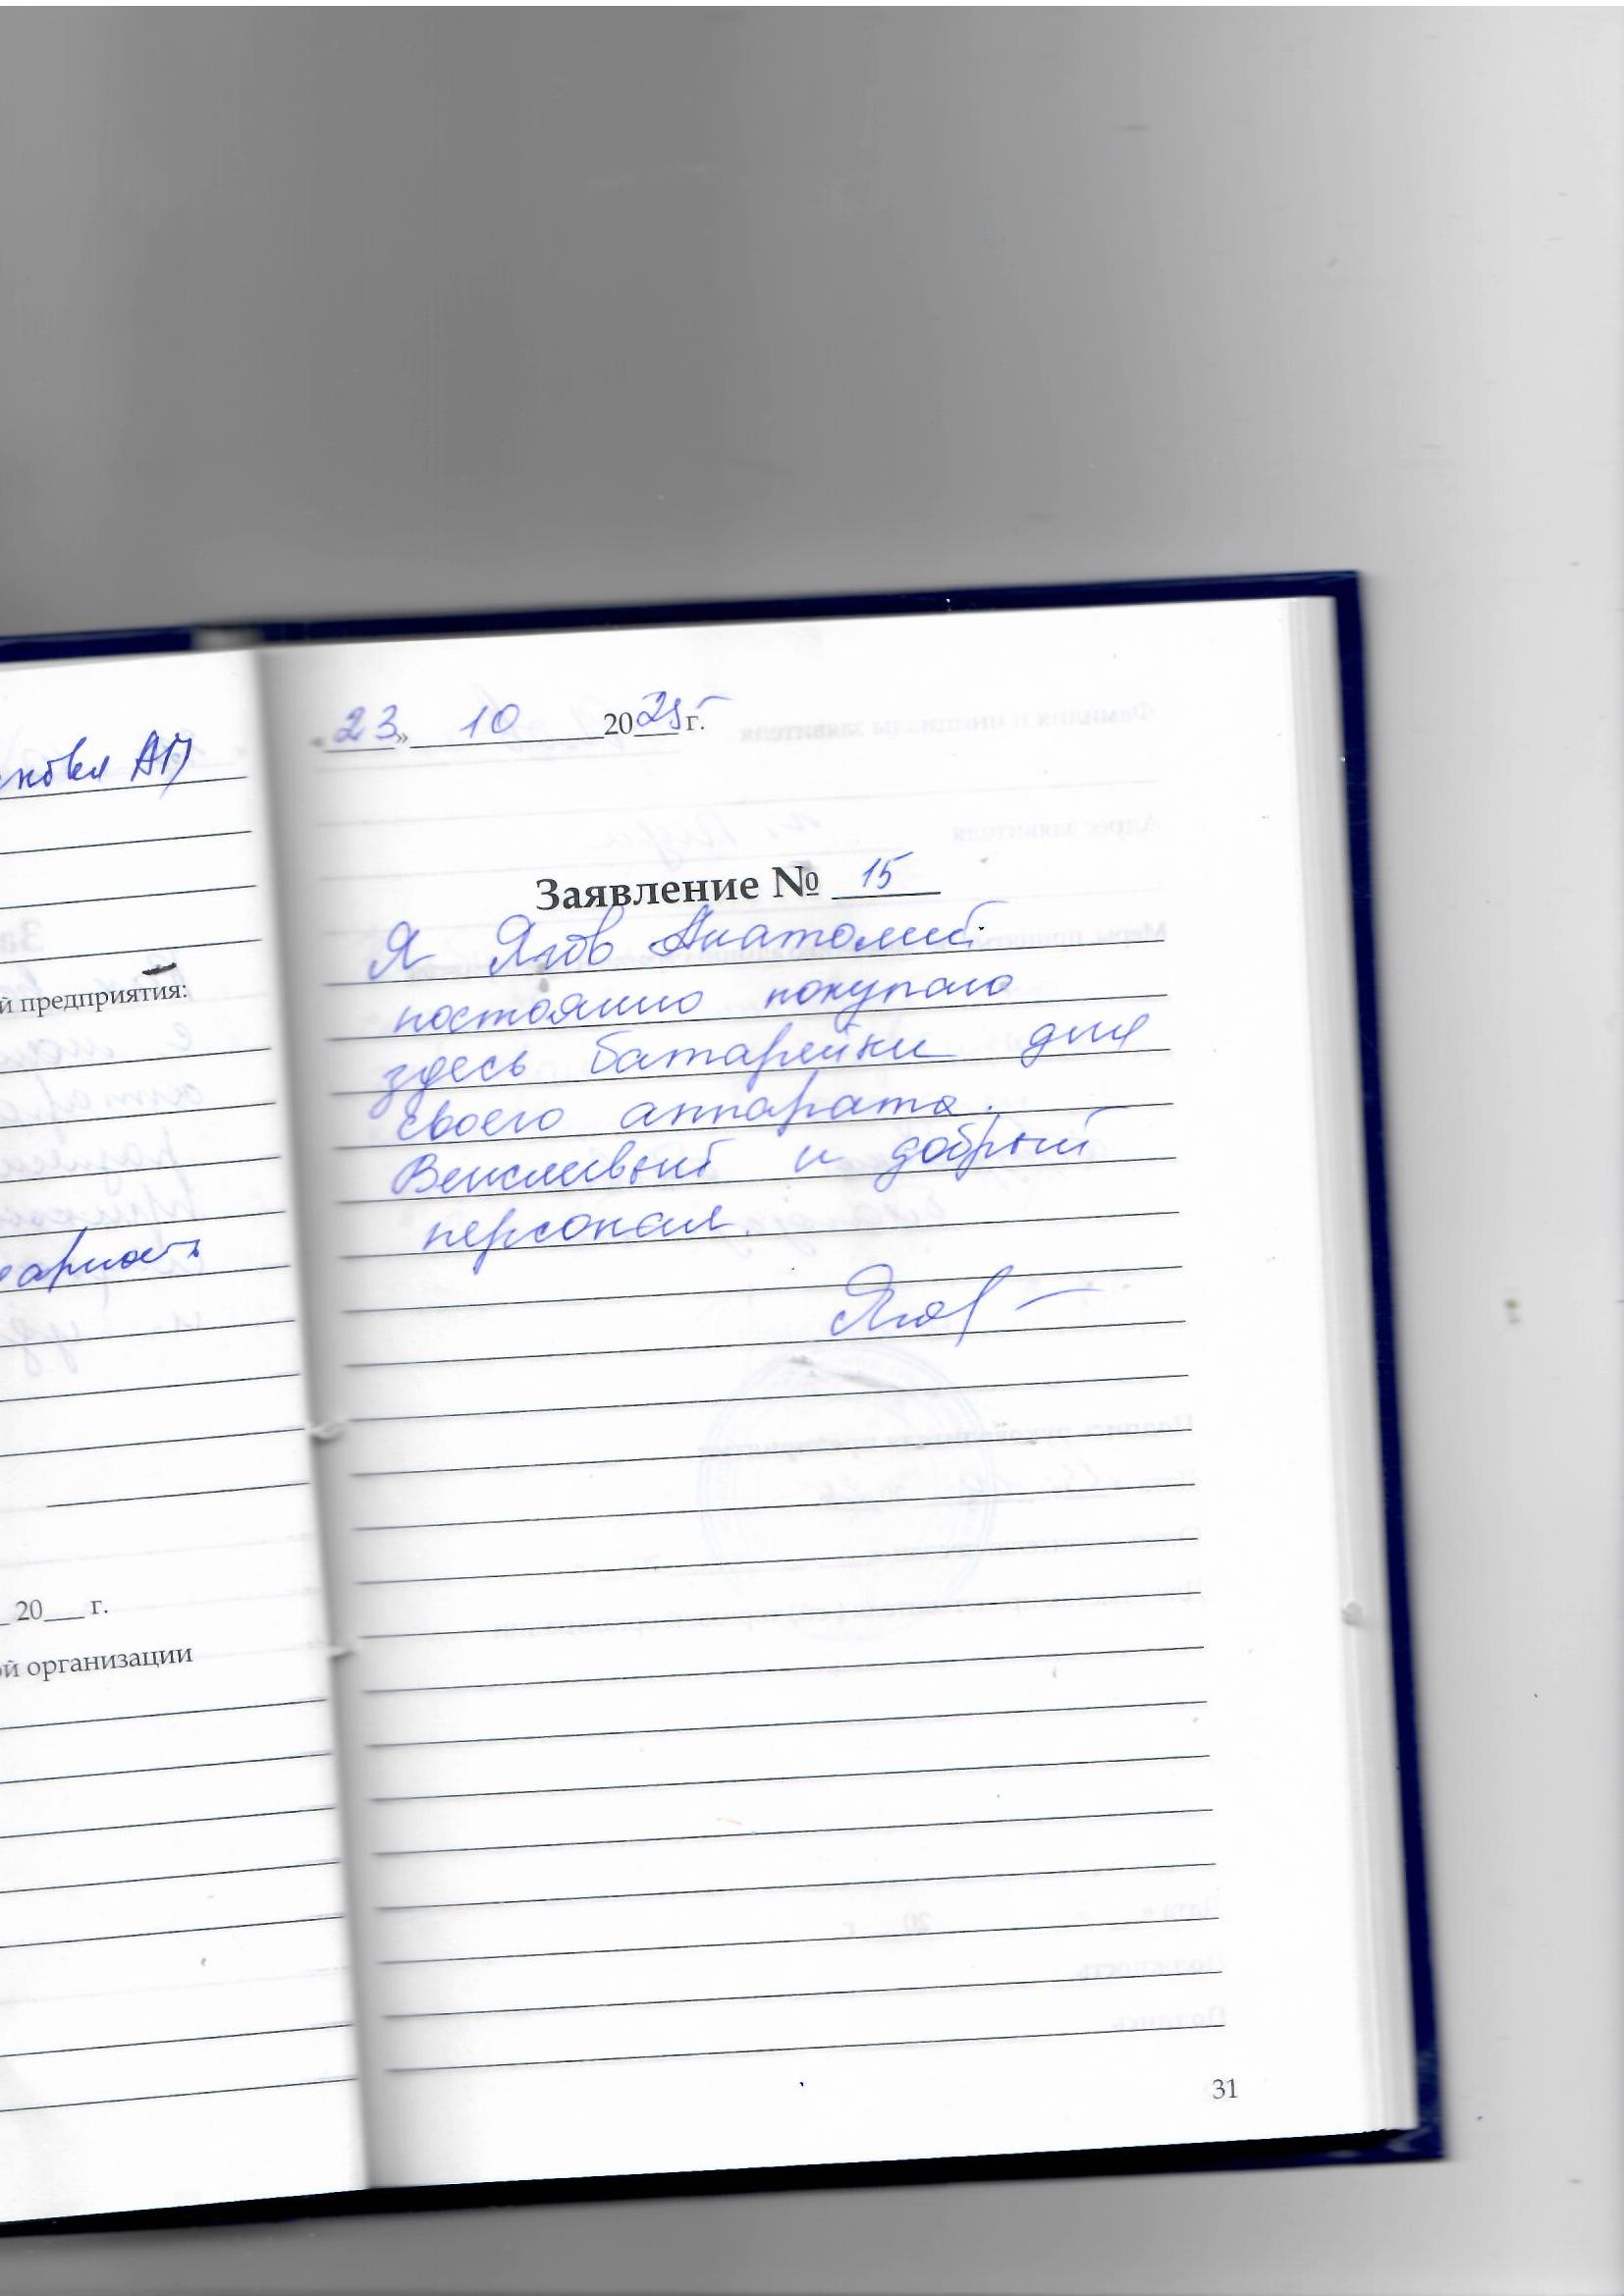 АП
й предприятия:
20___ г.
ой организации
«23» 10 2025 г.
Заявление № 15
Я Ягов Анатолий
постоянно покупаю
здесь батарейки для
своего аппарата.
Вежливый и добрый
персонал.
31